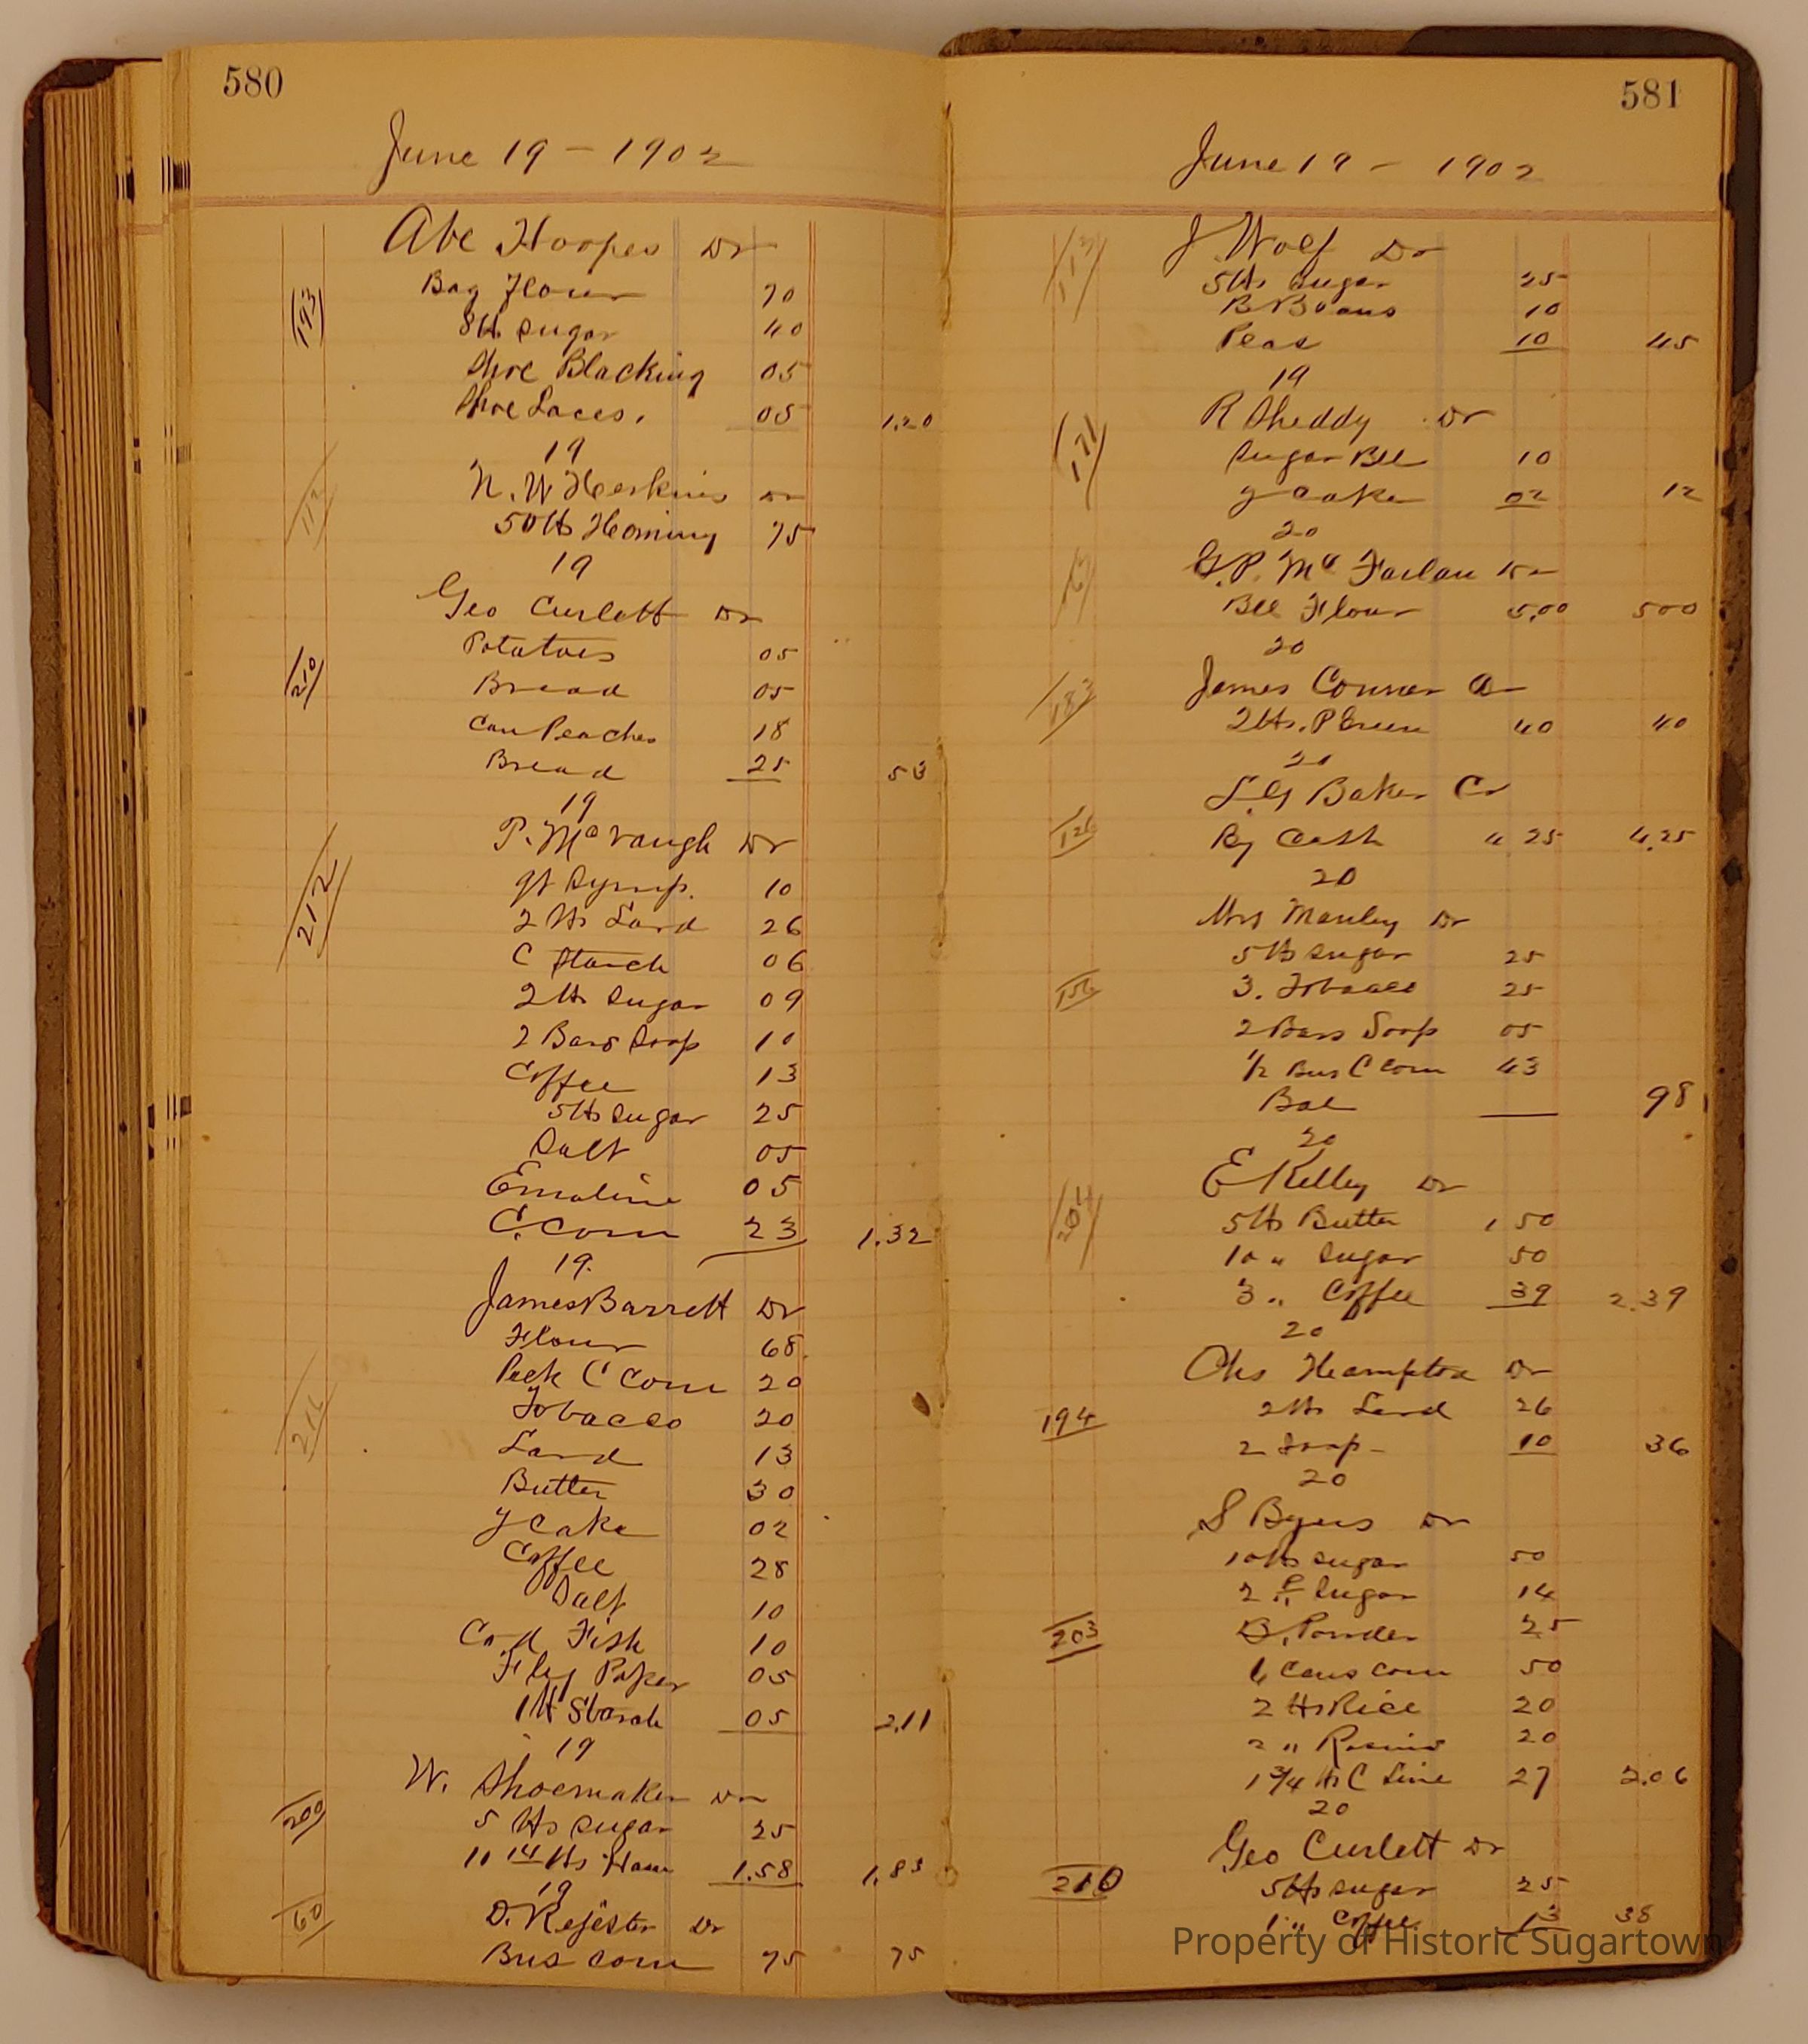 580
June 19 - 1902
Abe Hoopes Dr
193
Bag Flour 70
8 lbs Sugar 40
Shoe Blacking 05
Shoe Laces. 05 1.20
19
N. W Heskins Dr
112
50 lbs Hominy 75
19
Geo Curlett Dr
Potatoes 05
210
Bread 05
Can Peaches 18
Bread 25 53
19
P. McVaugh Dr
212
qt Syrup. 10
2 lbs Lard 26
C Starch 06
2 lbs Sugar 09
2 Bars Soap 10
Coffee 13
5 lbs Sugar 25
Salt 05
Emoline 05
C. Corn 23 1.32
19.
James Barrett Dr
Flour 68
Peck C Corn 20
Tobacco 20
Lard 13
Butter 30
Y Cake 02
Coffee 28
Salt 10
Cod Fish 10
Fly Paper 05
1 lb Starch 05 2.11
19
W. Shoemaker Dr
200
5 lbs Sugar 25
11 14 lbs Ham 1.58 1.83
19
60
D. Register Dr
Bus corn 75 75
581
June 19 - 1902
J Wolf Dr
5 lbs Sugar 25
B Beans 10
Peas 10 45
19
R Sheddy Dr
171
Sugar Bll 10
Y Cake 02 12
20
G. P. Mc Farlan Dr
Bll Flour 5.00 500
20
James Connor Dr
183
2 lbs. P Green 40 40
20
L. G Baker Cr
126
By Cash 4 25 4.25
20
Mrs Manley Dr
5 lbs Sugar 25
156
3. Tobacco 25
2 Bars Soap 05
1/2 Bus C corn 43
Bal 98
20
E Kelley Dr
201
5 lbs Butter 1 50
10 " Sugar 50
3 " Coffee 39 2.39
20
Chs Hampton Dr
194
2 lbs Lard 26
2 Soap 10 36
20
S Byers Dr
10 lbs Sugar 50
2 P. Sugar 14
203
B. Powder 25
6 Cans Corn 50
2 lbs Rice 20
2 " Raisins 20
1 3/4 lbs C Line 27 2.06
20
Geo Curlett Dr
210
5 lbs Sugar 25
1 " Coffee 13 38
Property of Historic Sugartown